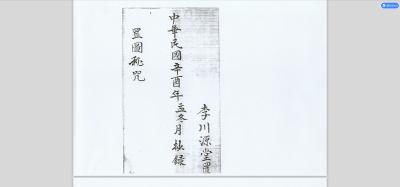 李川源堂置
中華民國辛酉年孟冬月抄錄
置圖秘咒